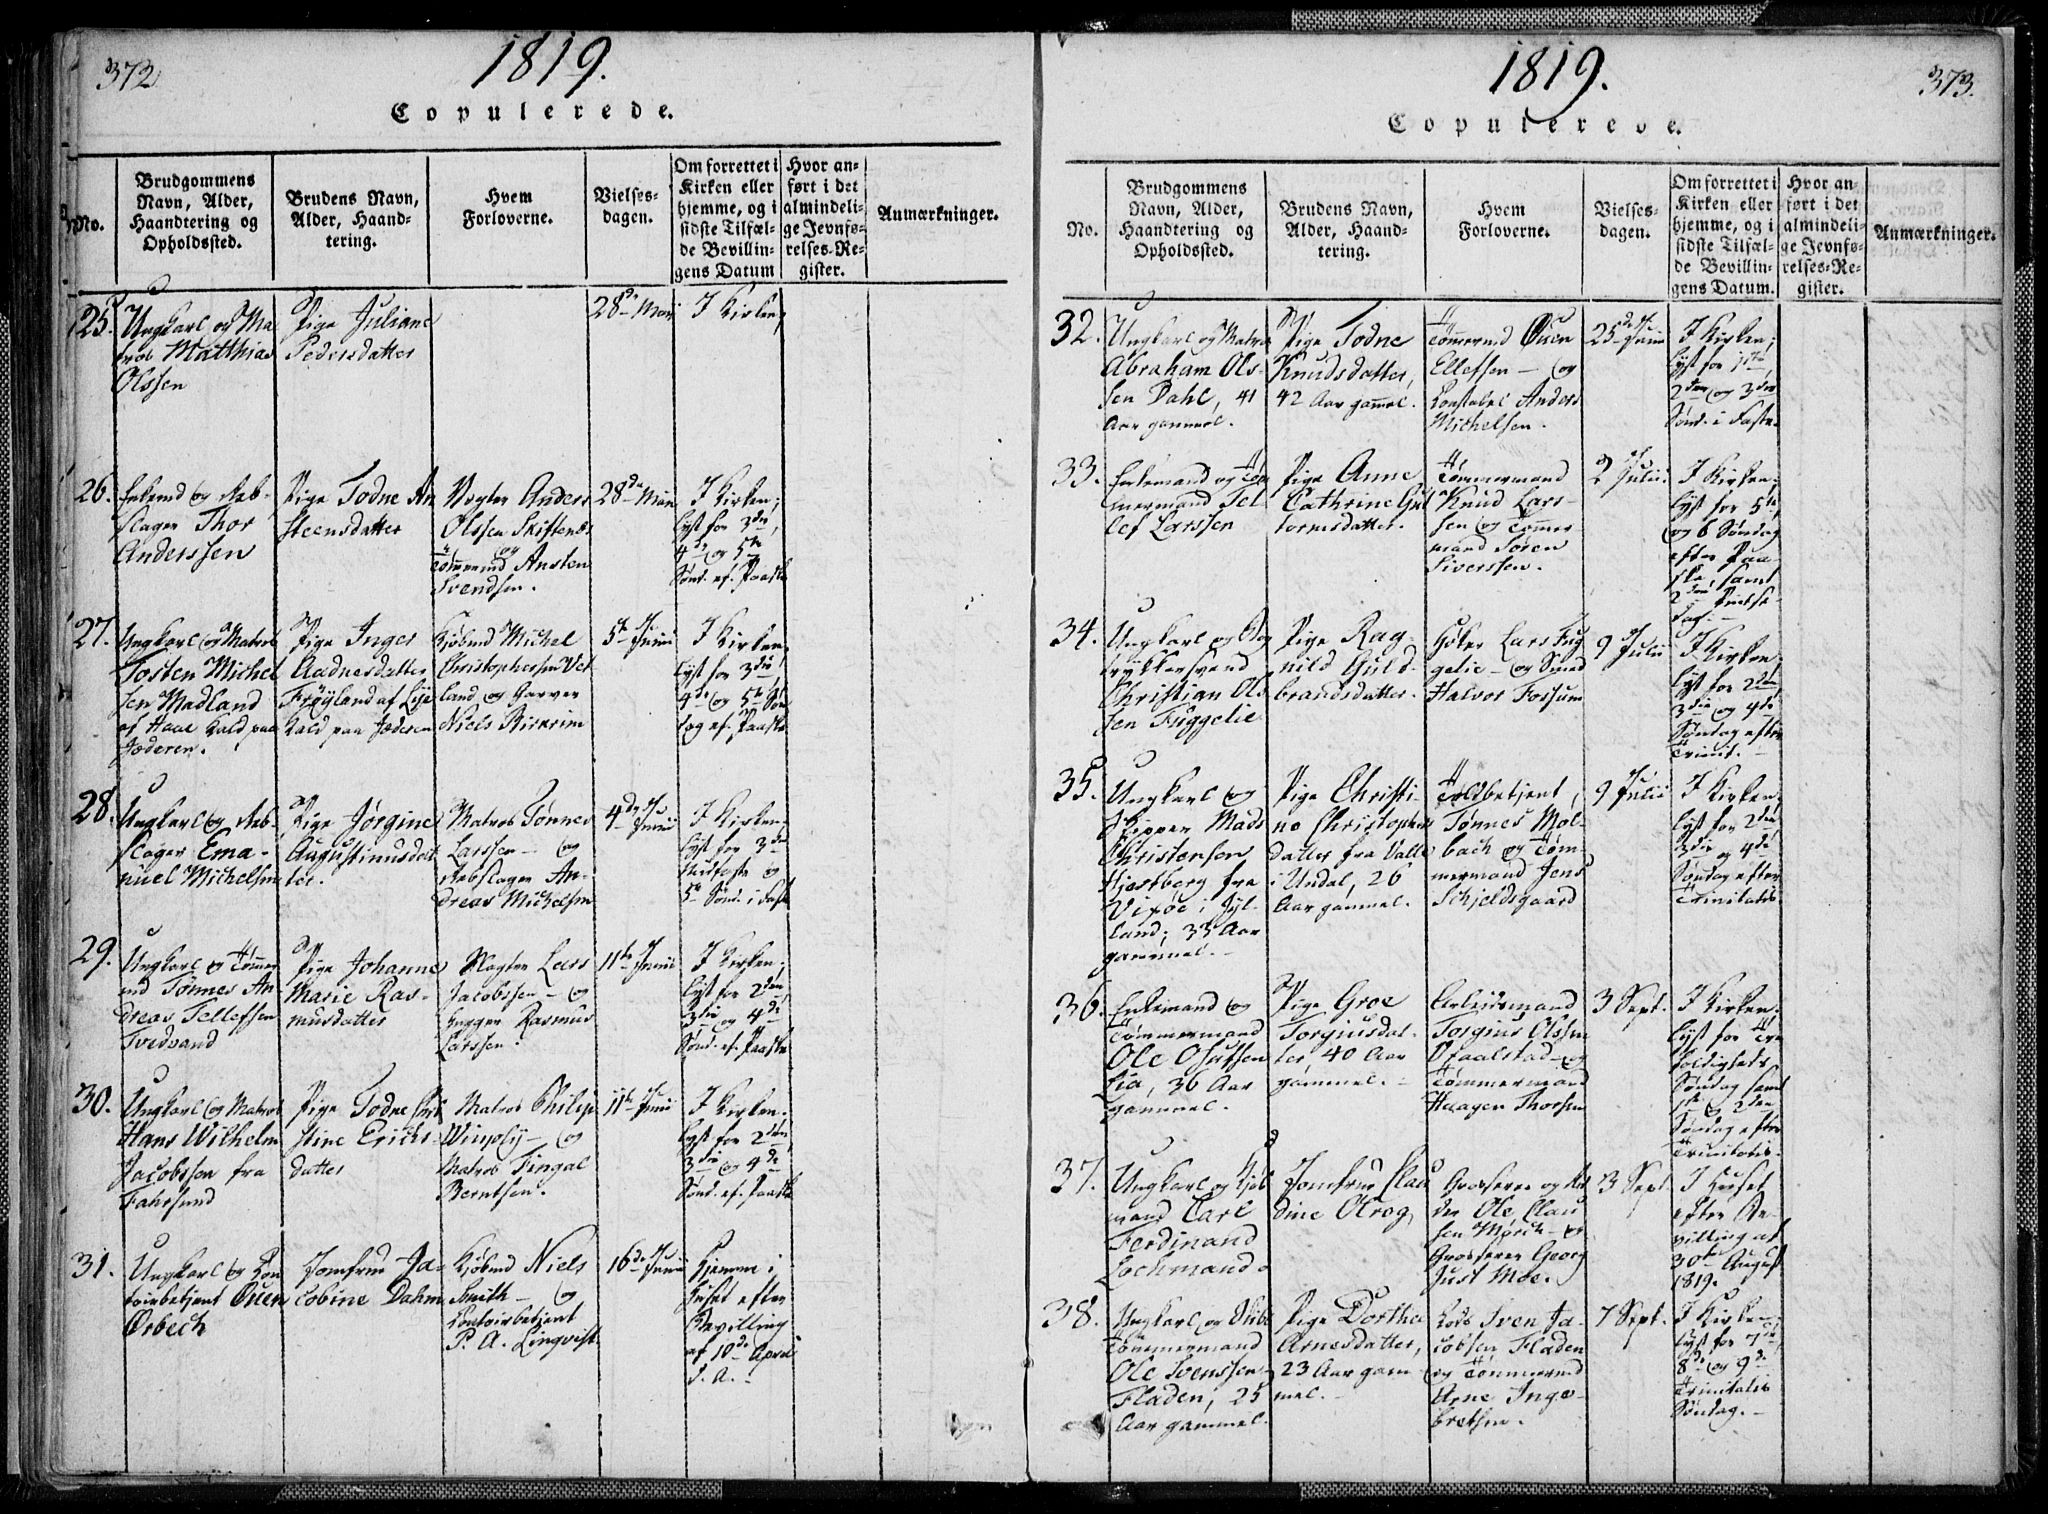 372
1819.
Copulerede.
No.
Brudgommens
Navn, Alder,
Haandtering og
Opholdssted.
Brudens Navn,
Alder, Haand-
tering.
Hvem
Forloverne.
Vielses-
dagen.
Om forrettet i
Kirken eller
hjemme, og i
sidste Tilfæl-
de Bevillin-
gens Datum
Hvor an-
ført i det
almindeli-
ge Jevnfø-
relses-Re-
gister.
Anmærkninger.
25.
Ungkarl og Ma
tros Matthias
Olssen
Pige Juliane
Pedersdatter
28de Maii
I Kirken;
26.
Enkemd og Reb-
slager Thor
Anderssen
Pige Todne An
steensdatter
Vegter Anders
Olssen Skiftenes
og
Tømermd Ansten
Svendsen.
28de Maii
I Kirken;
lyst for 3die,
4de og 5te
Sønd. ef. Paaske
27.
Ungkarl og Matros
Tosten Michel
sen Madland
af Haae Kald paa
Jæderen.
Pige Inger
Aadnesdatter
Frøyland af Lye
Kald paa Jæderen
Kjøbmd Michel
Christophersen Vet
land og Garver
Niels Birkrim
5te Junii
I Kirken,
lyst for 3die
4de og 5te Søn
dag ef. Paaske
28.
Ungkarl og Reb-
slager Ema-
nuel Michelsen
Pige Jørgine
Augustinusdat
ter.
Matros Tønnes
Larssen – og
Rebslager An-
dreas Michelsen
4de Junii
I Kirken.
lyst for 3de
Midfaste og
5te Sønd. i Faste
29.
Ungkarl og Tømer
md Tønnes An-
dreas Tellefsen
Tvedvand
Pige Johanne
Marie Ras-
musdatter
Vegter Lars
Jacobssen – og
Rasmus
Larssen.
11te Junii
I Kirken.
lyst for 2den
3die og 4de
Sønd. ef. Paaske
30.
Ungkarl og Matros
Hans Wilhelm
Jacobssen fra
Fahrsund
Pige Todne Chri
stine Erichs-
datter
Matros Philip
Winpsly – og
Matros Fingal
Berntsen.
11te Junii
I Kirken.
lyst for 2den
3die og 4de
Sønd. ef. Paaske
31.
Ungkarl og Con
toirbetjent Ouen
Ørbech
Jomfrue Ja-
cobine Dahm
Kjøbmd Niels
Smith – og
Contoirbetjent
P. A. Linqvist
16de Junii
Hjemme i
Huset efter
Bevilling
af 10de April
d. A. –
373.
1819.
Copulerede.
No.
Brudgommens
Navn, Alder,
Haandtering og
Opholdssted.
Brudens Navn,
Alder, Haand-
tering.
Hvem
Forloverne.
Vielses-
dagen.
Om forrettet i
Kirken eller
hjemme, og i
sidste Tilfæl-
de Bevillin-
gens Datum.
Hvor an-
ført i det
almindeli-
ge Jevnfø-
relses-Re-
gister.
Anmærkninger.
32.
Ungkarl og Matros
Abraham Ols-
sen Dahl, 41
Aar gammel.
Pige Todne
Knudsdatter,
42 Aar gamel.
Tømermd Ouen
Ellefsen – og
Konstabel Anders
Michelsen.
25de Junii
I Kirken;
lyst for 1ste,
2den og 3die
Sønd. i Faste.
33.
Enkemand og Tøm
mermand Tel-
lef Larssen
Pige Anne
Cathrine Gut
tormsdatter.
Tømmermand
Knud Lars-
sen og Tømer-
mand Søren
Siverssen.
2 Julii.
I Kirken.
lyst for 5te,
og 6 Søndag
efter Paa
ske, samt
2den Pintse-
dag. –
34.
Ungkarl og Bog
trykkersvend
Christian Ols
sen Fuggelie
Pige Rag-
nild Guld-
brandsdatter.
Høker Lars Fug
gelie – og Smed
Halvor Fossum
9 Julii
I Kirken.
lyst for 2den
3die og 4de
Søndag efter
Trinit. –
35.
Ungkarl og
Skipper Mads
Christensen
Hjertberg fra
Vixøe i Jyl-
land; 33 Aar
gammel. –
Pige Christi-
ne Christophers
datter fra Valle
i Undal, 26
Aar gammel.
Toldbetjent,
Tønnes Mol-
bach og Tøm-
mermand Jens
Schjeldsgaard
9 Julii
I Kirken,
lyst for 2den
3die og 4de
Søndag efter
Trinitatis
36.
Enkemand og
Tømmermand
Ole Osufsen
Lia, 36 Aar
gammel.
Pige Groe
Torgiusdat-
ter 40 Aar
gammel. –
Arbeidsmand
Torgius Olssen
Ufaalstad – og
Tømmermand
Haagen Thorsen
3 Sept.
I Kirken.
lyst for Tre
foldigheds
Søndag samt
1ste og 2den
Søndag efter
Trinitatis.
37.
Ungkarl og Kjøb
mand Carl
Ferdinand
Lochmand
Jomfrue Clau
dine Olrog
Grosserer og
Ole Clau
sen Mørch – og
Grosserer Georg
Just Moe.
3 Sept.
I Huset
efter Be-
villing af
30te August
1819.
38.
Ungkarl og Skibs
Tømmermand
Ole Svenssen
Fladen, 25
Aar gammel.
Pige Dorthea
Arnesdatter,
23 Aar gam
mel. –
Lods Sven Ja-
cobsen Fladen
og Tømmermd
Arne Inge-
bretsen.
7 Sept.
I Kirken,
lyst for 7de,
8de og 9de
Trinitatis
Søndag. –